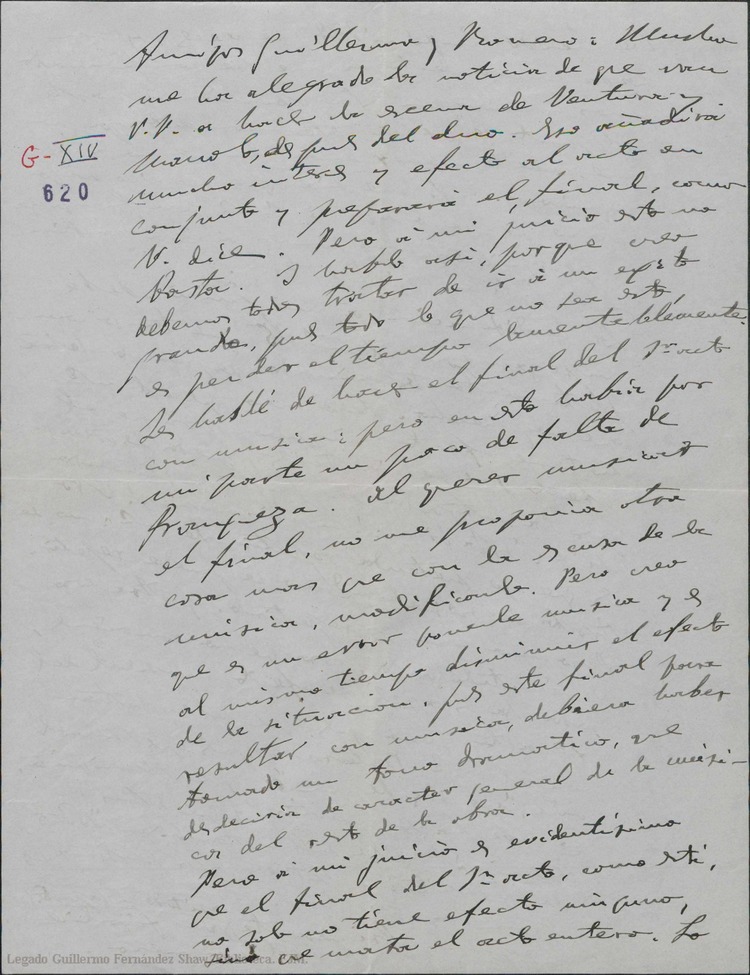 Amigos Guillermo y Romero: Mucho
me ha alegrado la noticia de que van
V.V. a hacer la escena de Ventura y
Manolo, después del duo. Eso añadirá
G-XIV
620
mucho interés y efecto al acto en
conjunto y preparará el final, como
V. dice. Pero á mi juicio esto no
basta. Y hablo así, porque creo
debemos todos tratar de ir á un exito
grande, pues todo lo que no sea esto,
es perder el tiempo lamentablemente.
Les hablé de hacer el final del 1er acto
con musica; pero en esto habia por
mi parte un poco de falta de
franqueza. Al querer musicar
el final, no me proponia otra
cosa mas que con la escusa de la
musica, modificarlo. Pero creo
que es un error ponerle musica y es
al mismo tiempo disminuir el efecto
de la situacion, pues este final para
resultar con musica, debiera haber
tomado un tono dramatico, que
desdeciria de caracter general de la músi-
ca del resto de la obra.
Pero á mi juicio es evidentísimo
que el final del 1er acto, como está,
no solo no tiene efecto ninguno,
sino que mata el acto entero. Lo
Legado Guillermo Fernández Shaw. Biblioteca. FJM.